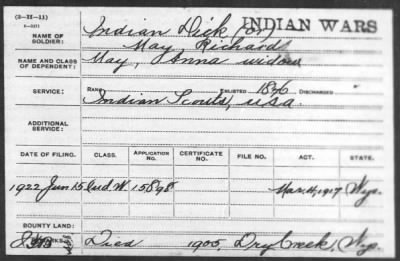 (3-II-11)
INDIAN WARS
NAME OF SOLDIER:
Indian Dick (or)
May, Richard
NAME AND CLASS OF DEPENDENT:
May, Anna widow
SERVICE:
RANK ENLISTED 1876 DISCHARGED
Indian Scouts, USA.
ADDITIONAL SERVICE:
DATE OF FILING. CLASS. APPLICATION NO. CERTIFICATE NO. FILE NO. ACT. STATE.
1922 Jun 15 Ind. W. 15898 Mar. 4, 1917 Wyo.
BOUNTY LAND:
Died 1905, Dry Creek, Wyo.